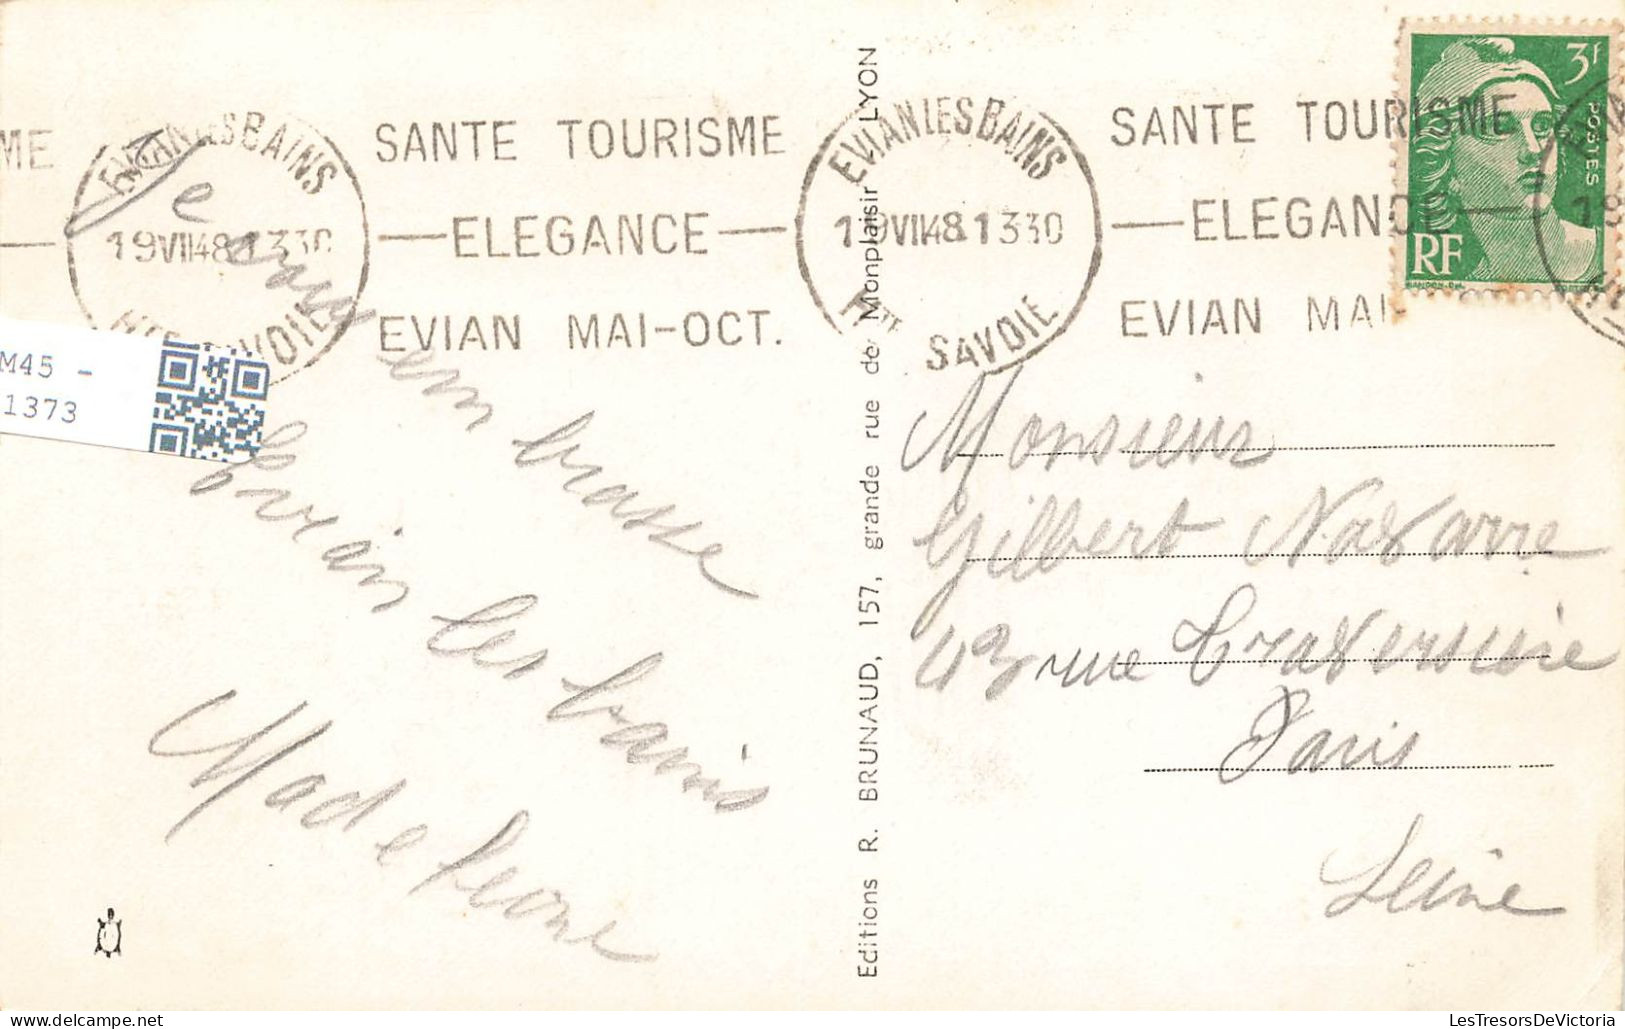 ME
EVIAN LES BAINS
19 VII 48.1330
Hte SAVOIE
SANTE TOURISME
ELEGANCE
EVIAN MAI-OCT.
EVIAN LES BAINS
19 VII 48.1330
Hte SAVOIE
SANTE TOURISME
ELEGANCE
EVIAN MAI-
3f
POSTES
RF
M45 -
1373
Je
brasse
Evian les bains
Madeleone
Editions R. BRUNAUD, 157, grande rue de Monplaisir - LYON
Monsieur
Gilbert Navarre
43 rue Traversière
Paris
Seine
LesTresorsDeVictoria